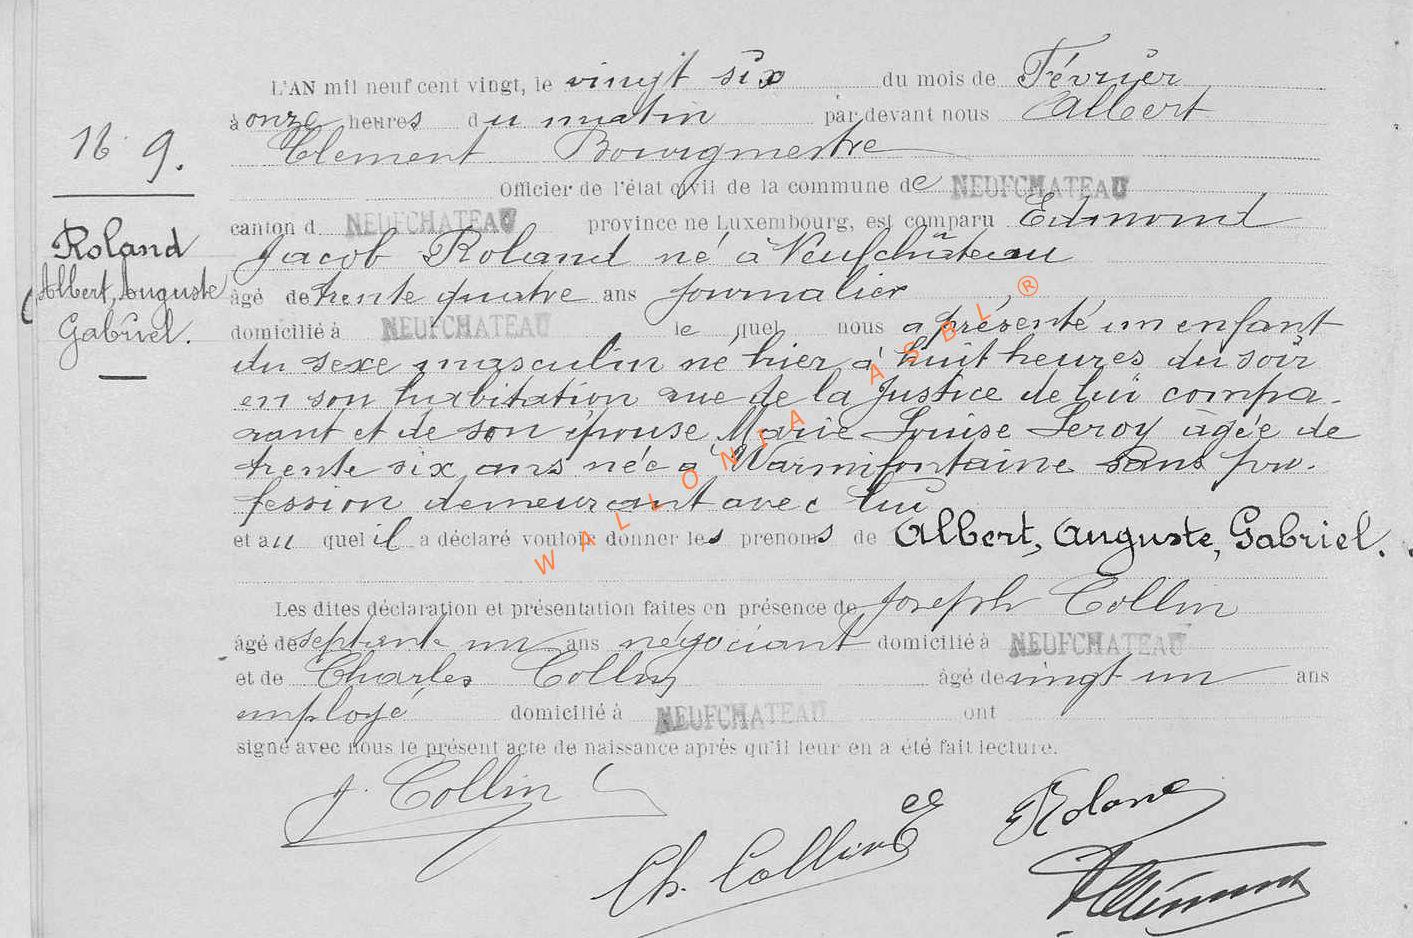 L'AN mil neuf cent vingt, le vingt six du mois de Février
à onze heures du matin par devant nous Albert
Clement Bourgmestre
Officier de l'état civil de la commune de NEUFCHATEAU
canton d NEUFCHATEAU province de Luxembourg, est comparu Edmond
Jacob Roland né à Neufchâteau
âgé de trente quatre ans journalier
domicilié à NEUFCHATEAU le quel nous a présenté un enfant
du sexe masculin né hier à huit heures du soir
en son habitation rue de la Justice de lui compa-
rant et de son épouse Marie Louise Leroy âgée de
trente six ans née à Warmifontaine sans pro-
fession demeurant avec lui
et au quel il a déclaré vouloir donner les prenoms de Albert, Auguste, Gabriel.
Les dites déclaration et présentation faites en présence de Joseph Collin
âgé de septante un ans négociant domicilié à NEUFCHATEAU
et de Charles Collin âgé de vingt un ans
employé domicilié à NEUFCHATEAU ont
signé avec nous le présent acte de naissance après qu'il leur en a été fait lecture.
J. Collin
Ch. Collin
Roland
AClément
9.
Roland
Albert, Auguste
Gabriel.
WALLONIA ASBL ®